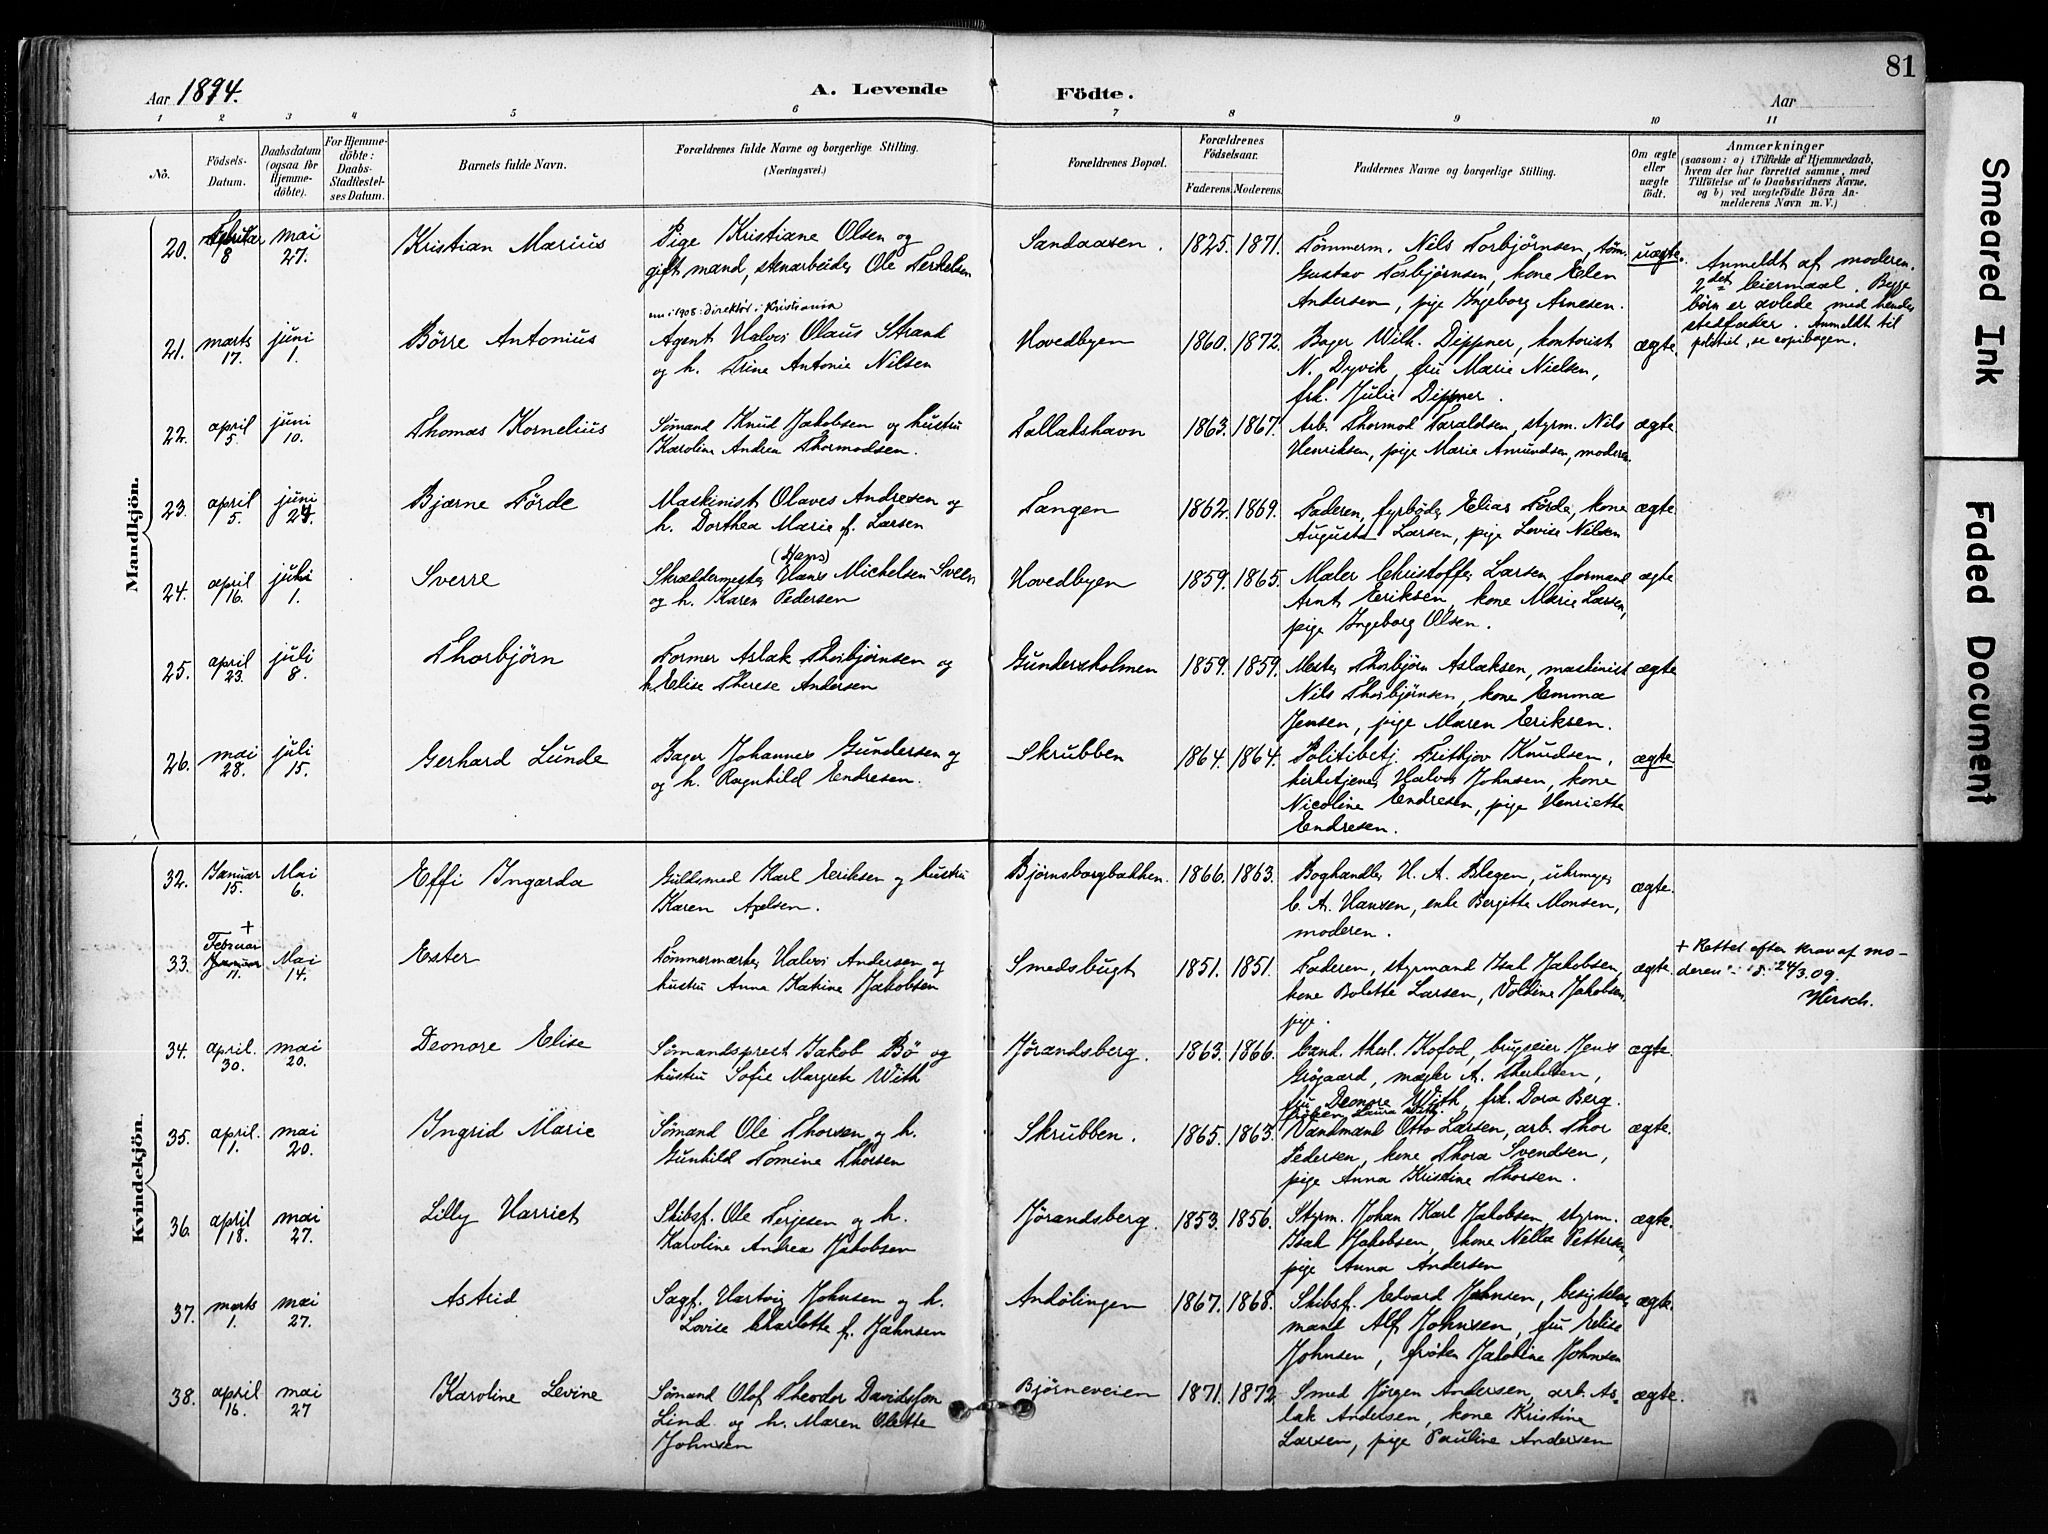 81
Aar 1894.
A. Levende
Födte.
Aar
1 2 3 4 5 6 7 8 9 10 11
No.
Födsels-
Datum.
Daabsdatum
(ogsaa for
Hjemme-
döbte).
For Hjemme-
döbte:
Daabs-
Stadfestel-
ses Datum.
Barnets fulde Navn.
Forældrenes fulde Navne og borgerlige Stilling.
(Næringsvei.)
Forældrenes Bopæl.
Forældrenes
Födselsaar.
Faderens. Moderens.
Faddernes Navne og borgerlige Stilling.
Om ægte
eller
uægte
födt.
Anmærkninger
(saasom: a) i Tilfælde af Hjemmedaab,
hvem der har forrettet samme, med
Tilföielse af to Daabsvidners Navne,
og b) ved uægtefödte Börn An-
melderens Navn m. V.)
Mandkjön.
20. 8 mai 27.
Kristian Marius
Pige Kristiane Olsen og
gift mand, stenarbeider Ole Terkelsen
Sandaasen.
1825. 1871.
Tømmerm. Nils Torbjørnsen, tøm.
Gustav Torbjørnsen, kone Elen
Andersen, pige Ingeborg Arnesen.
uægte.
Anmeldt af moderen.
2det leiermaal. Begge
børn er avlede med hendes
stedfader. Anmeldt til
politiet, se copibogen.
21. marts 17. juni 1.
Børre Antonius
nu i 1908: direktør i Kristiania
Agent Halvor Olaus Strand
og h. Trine Antonie Nilsen
Hovedbyen
1860. 1872.
Bager Wilh. Dippner, kontorist
N. Dyvik, fru Marie Nielsen,
frk. Julie Dippner.
ægte.
22. april 5. juni 10.
Thomas Kornelius
Sømand Knud Jakobsen og hustru
Karoline Andrea Thormodsen.
Tallakshavn
1863. 1867.
Arb. Thormod Taraldsen, styrm. Nils
Henriksen, pige Marie Amundsen, moderen.
ægte
23. april 5. juni 24.
Bjarne Førde
Maskinist Olaves Andresen og
h. Dorthea Marie f. Larsen
Tangen
1862. 1869.
Faderen, fyrbøder Elias Førde, kone
Augusta Larsen, pige Lovise Nilsen
ægte
24. april 16. juli 1.
Sverre
(Hans)
Skræddermester Hans Michelsen Sveen
og h. Karen Pedersen
Hovedbyen
1859. 1865.
Maler Christoffer Larsen, formand
Arnt Eriksen, kone Marie Larsen,
pige Ingeborg Olsen.
ægte
25. april 23. juli 8.
Thorbjörn
Former Aslak Thorbjørnsen og
h. Elise Therese Andersen
Gundersholmen
1859. 1859.
Mester Thorbjørn Aslaksen, maskinist
Nils Thorbjørnsen, kone Emma
Jensen, pige Maren Eriksen.
ægte
26. mai 28. juli 15.
Gerhard Lunde
Bager Johannes Gundersen og
og h. Ragnhild Endresen.
Skrubben
1864. 1864.
Politibetj. Frithjov Knudsen,
kirketjener Halvor Johnsen, kone
Nicoline Endresen, pige Henriette
Endresen.
ægte
Kvindekjön.
32. Januar 15. Mai 6.
Effi Ingarda
Guldsmed Karl Eriksen og hustru
Karen Axelsen.
Bjørnsborgbakken.
1866. 1863.
Boghandler H. A. Blegen, uhrmager
C. A. Hansen, enke Bergitte Monsen,
moderen.
ægte.
33. + Februar Januar 11. Mai 14.
Ester
Tømmermester Halvor Andersen og
hustru Anna Katine Jakobsen
Smedsbugt
1851. 1851.
Faderen, styrmand Isak Jakobsen,
kone Bolette Larsen, Voldine Jakobsen,
pige.
ægte.
+ Rettet efter krav af mo-
deren 24/3.09.
Hirsch.
34. april. 30. mai 20.
Deonore Elise
Sømandsprest Jakob Bø og
hustru Sofie Margrete With
Jørandsberg.
1863. 1866.
Cand. theol. Kofod, brugseier Jens
Grøgaard, mægler A. Therkelsen,
fru Deonore With, frk. Dora Berg.
frøken Laura With.
ægte.
35. april. 1. mai 20.
Ingrid Marie
Sømand Ole Thorsen og h.
Gunhild Tomine Thorsen
Skrubben.
1865. 1863.
Vandmand Otto Larsen, arb. Thor
Pedersen, kone Thora Svendsen,
pige Anna Kristine Thorsen.
ægte.
36. april 18. mai 27.
Lilly Harriet
Skibsf. Ole Terjesen og h.
Karoline Andrea Jakobsen
Jørandsberg.
1853. 1856.
Styrm. Johan Karl Jakobsen, styrm.
Isak Jakobsen, kone Nella Pettersen,
pige Anna Andersen
ægte.
37. marts 1. mai 27.
Astrid
Sagf. Hartvig Johnsen og h.
Lovise Charlotte f. Jahnsen
Andølingen
1867. 1868.
Skibsf. Edvard Johnsen, besigtelses
mand Alf Johnsen, fru Elise
Johnsen, frøken Jakobine Johnsen
ægte.
38. april 16. mai 27
Karoline Levine
Sømand Olof Theodor Davidsson
Lind og h. Maren Olette
Johnsen
Bjørneveien
1871. 1872
Smed Jørgen Andersen, arb. As-
lak Andersen, kone Kristine
Larsen, pige Pauline Andersen
ægte.
Smeared Ink
Faded Document